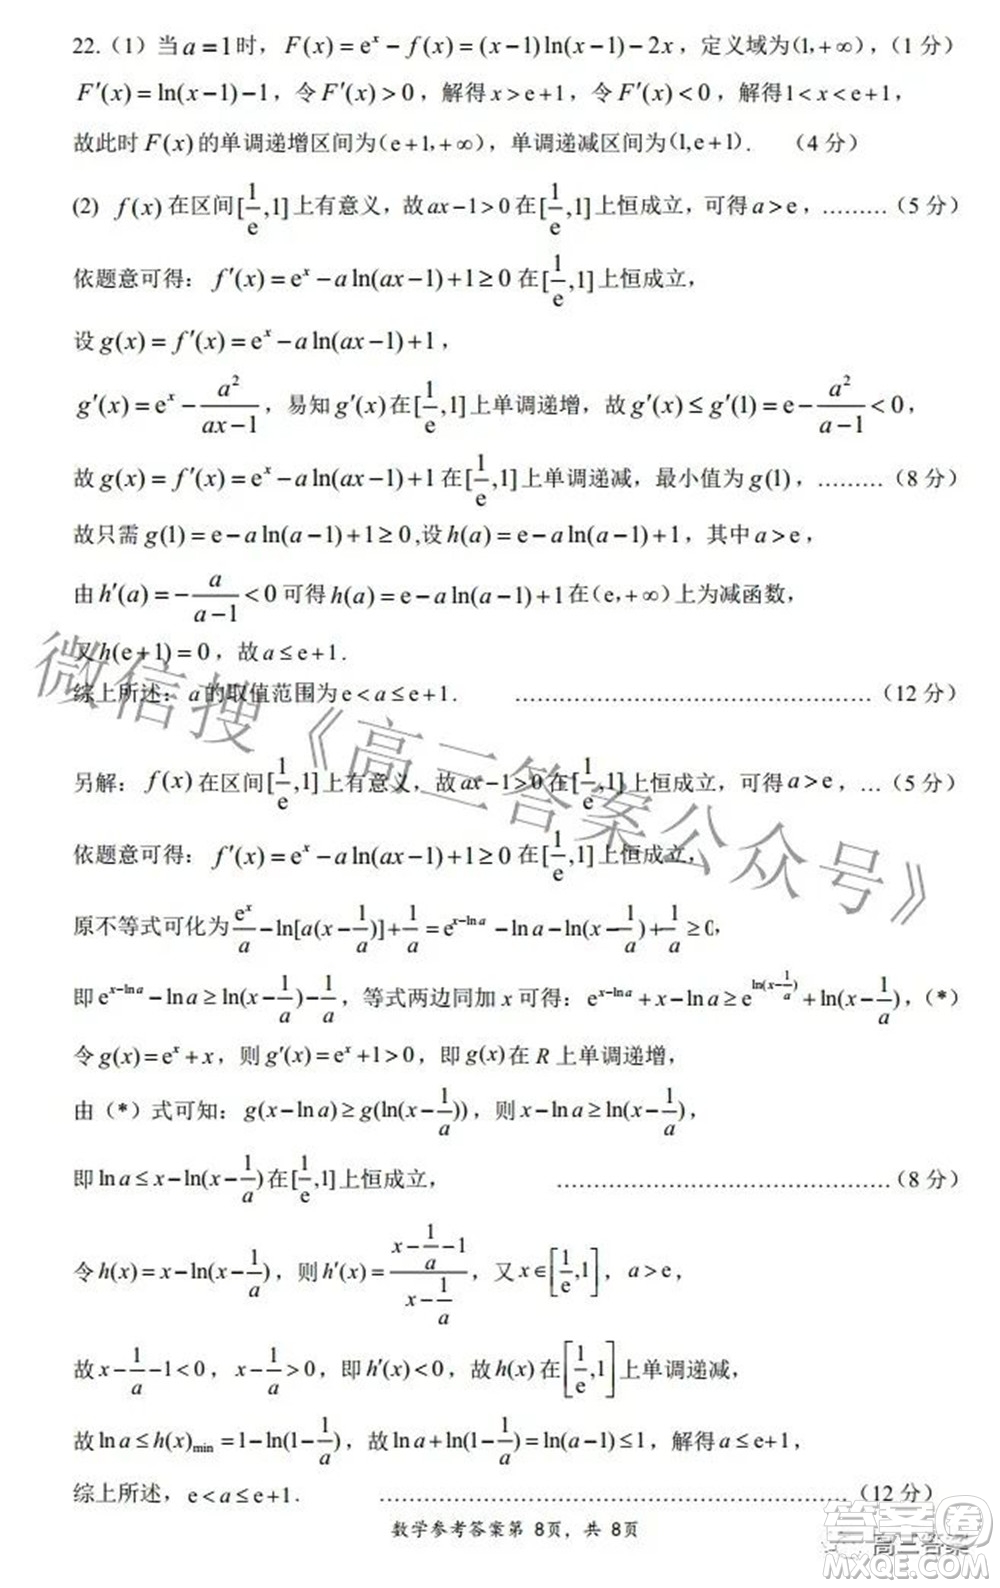 22.（1）当 a=1 时，F(x)=eˣ−f(x)=(x−1)ln(x−1)−2x，定义域为(1,+∞)，（1 分）
F′(x)=ln(x−1)−1，令 F′(x)>0，解得 x>e+1，令 F′(x)<0，解得1<x<e+1，
故此时 F(x) 的单调递增区间为（e+1,+∞），单调递减区间为(1,e+1)．（4 分）
(2) f(x) 在区间[1/e,1]上有意义，故 ax−1>0 在[1/e,1]上恒成立，可得 a>e，………（5 分）
依题意可得：f′(x)=eˣ−a ln(ax−1)+1≥0 在[1/e,1]上恒成立，
设 g(x)=f′(x)=eˣ−a ln(ax−1)+1，
g′(x)=eˣ−a²/(ax−1)，易知 g′(x) 在[1/e,1]上单调递增，故 g′(x)≤g′(1)=e−a²/(a−1)<0，
故 g(x)=f′(x)=eˣ−a ln(ax−1)+1 在[1/e,1]上单调递减，最小值为 g(1)，………（8 分）
故只需 g(1)=e−a ln(a−1)+1≥0,设 h(a)=e−a ln(a−1)+1，其中 a>e，
由 h′(a)=−a/(a−1)<0 可得 h(a)=e−a ln(a−1)+1 在（e,+∞）上为减函数，
又 h(e+1)=0，故 a≤e+1．
综上所述：a 的取值范围为 e<a≤e+1．………………………………（12 分）
另解：f(x) 在区间[1/e,1]上有意义，故 ax−1>0 在[1/e,1]上恒成立，可得 a>e，…（5 分）
依题意可得：f′(x)=eˣ−a ln(ax−1)+1≥0 在[1/e,1]上恒成立，
原不等式可化为 eˣ/a−ln[a(x−1/a)]+1/a=e^(x−ln a)−ln a−ln(x−1/a)+1/a≥0，
即 e^(x−ln a)−ln a≥ln(x−1/a)−1/a，等式两边同加 x 可得：e^(x−ln a)+x−ln a≥e^(ln(x−1/a))+ln(x−1/a)，（*）
令 g(x)=eˣ+x，则 g′(x)=eˣ+1>0，即 g(x) 在 R 上单调递增，
由（*）式可知：g(x−ln a)≥g(ln(x−1/a))，则 x−ln a≥ln(x−1/a)，
即 ln a≤x−ln(x−1/a) 在[1/e,1]上恒成立，………………………………（8 分）
令 h(x)=x−ln(x−1/a)，则 h′(x)=(x−1/a−1)/(x−1/a)，又 x∈[1/e,1]，a>e，
故 x−1/a−1<0，x−1/a>0，即 h′(x)<0，故 h(x) 在[1/e,1]上单调递减，
故 ln a≤h(x)min=1−ln(1−1/a)，故 ln a+ln(1−1/a)=ln(a−1)≤1，解得 a≤e+1，
综上所述，e<a≤e+1．………………………………（12 分）
数学参考答案第 8页，共 8页
微信搜《高三答案公众号》
高三答案
答案圈
MXQE.COM